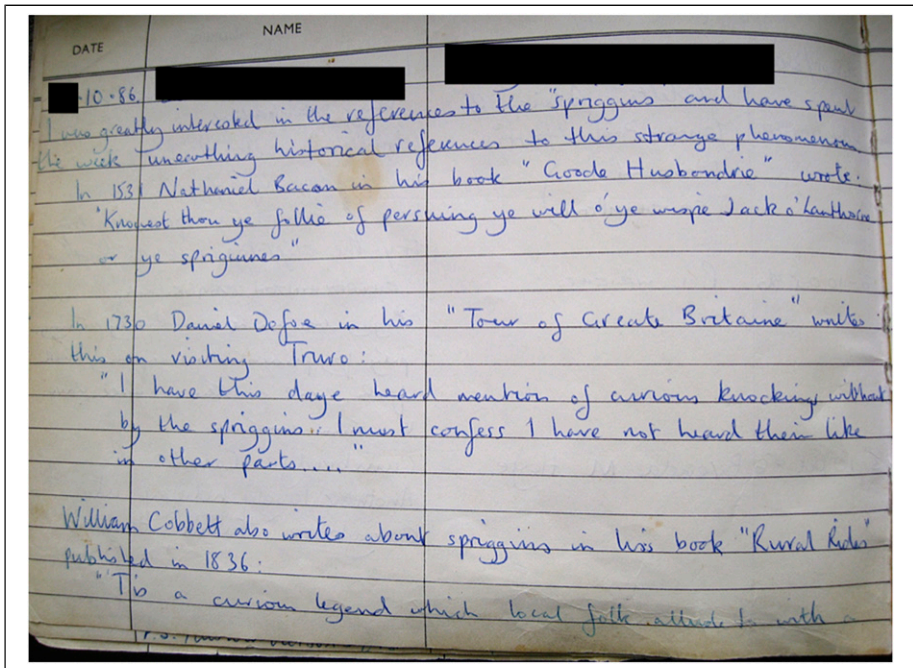 DATE NAME
10.86
I was greatly interested in the references to the "spriggins and have spent
the week unearthing historical references to this strange phenomenon
In 1531 Nathaniel Bacon in his book "Goode Husbondrie" wrote.
"Knowest thou ye follie of persuing ye will o' ye wispe Jack o'Lanthorne
or ye sprigiunes"
In 1730 Daniel Defoe in his "Tour of Greate Britaine" writes
this on visiting Truro:
"I have this daye heard mention of curious knockings without
by the spriggins. I must confess I have not heard their like
in other parts...."
William Cobbett also writes about spriggins in his book "Rural Rides"
published in 1836:
"Tis a curious legend which local folk allude to with a